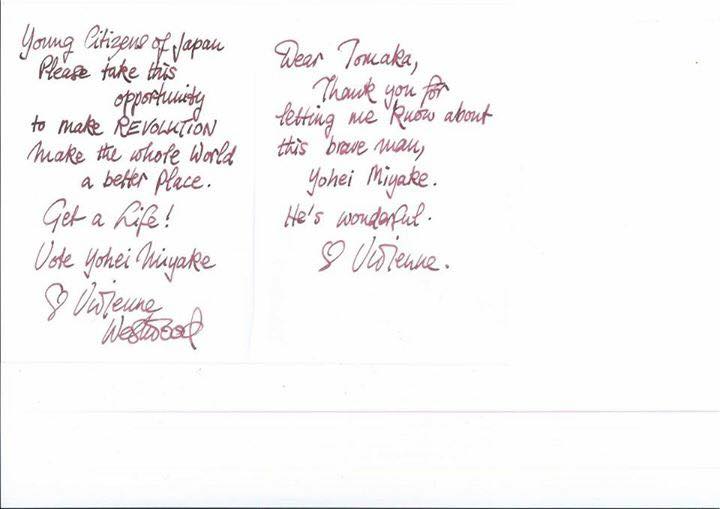 Young Citizens of Japan
Please take this
opportunity
to make REVOLUTION
Make the whole World
a better place.
Get a Life!
Vote Yohei Miyake
♡ Vivienne
Westwood
Dear Tomaka,
Thank you for
letting me know about
this brave man,
Yohei Miyake.
He's wonderful.
♡ Vivienne.